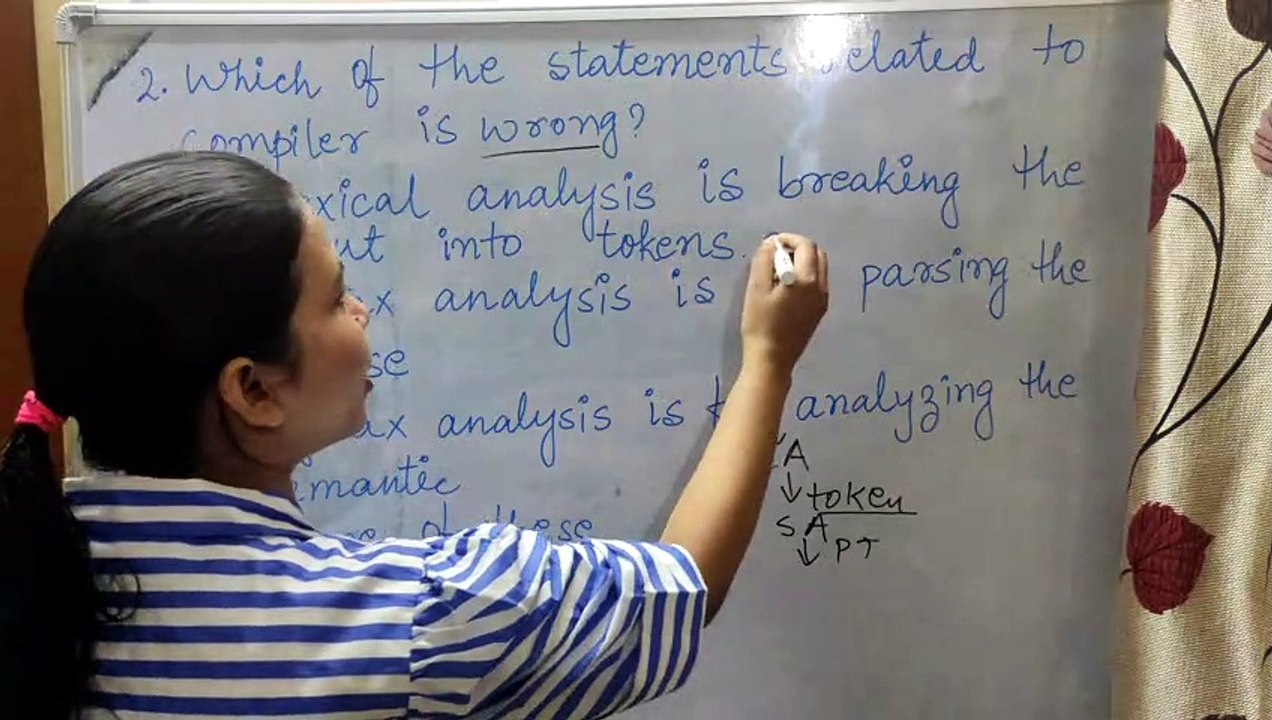 2. Which of the statements related to
compiler is wrong?
analysis is breaking the
into tokens.
analysis is parsing the
analysis is analyzing the
of these
A
token
SA
PT